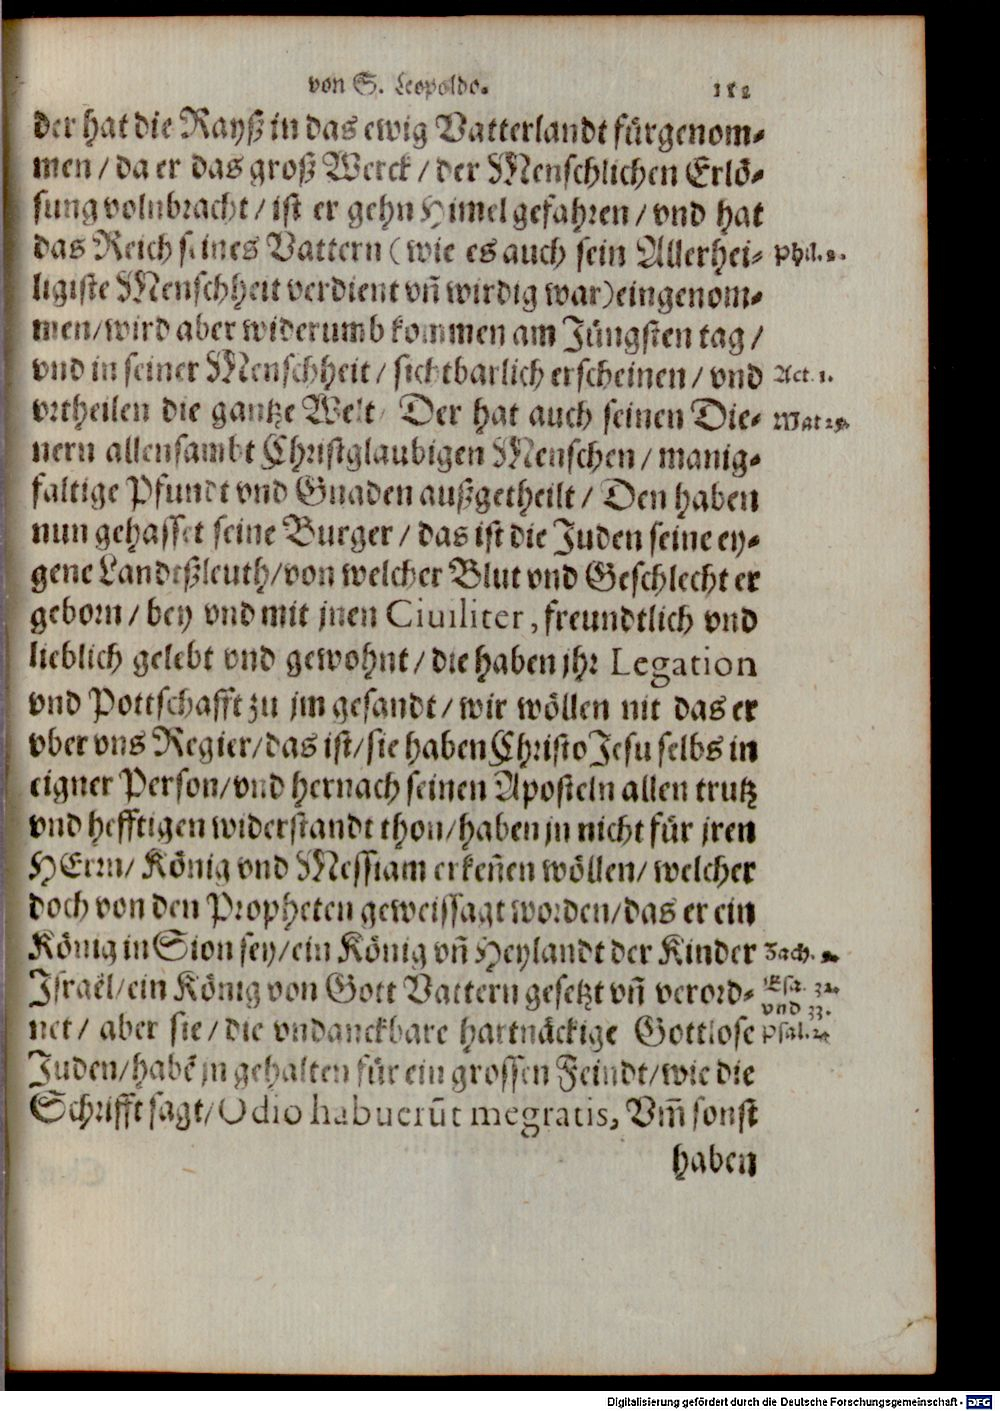 von S. Leopoldo.
der hat die Rayß in das ewig Vatterlandt fürgenom-
men / da er das groß Werck / der Menschlichen Erlö-
sung volnbracht / ist er gehn Himel gefahren / vnd hat
das Reich seines Vattern (wie es auch sein Allerhei-
Phil. 2.
ligiste Menschheit verdient vñ wirdig war) eingenom-
men / wird aber widerumb kommen am Jüngsten tag /
vnd in seiner Menschheit / sichtbarlich erscheinen / vnd
Act. 1.
vrtheilen die gantze Welt / Der hat auch seinen Die-
Mat
nern allensambt Christglaubigen Menschen / manig-
faltige Pfundt vnd Gnaden außgetheilt / Den haben
nun gehasset seine Burger / das ist die Juden seine ey-
gene Landtßleuth / von welcher Blut vnd Geschlecht er
geborn / bey vnd mit jnen Ciuiliter, freundtlich vnd
lieblich gelebt vnd gewohnt / die haben jhr Legation
vnd Pottschafft zu jm gesandt / wir wöllen nit das er
vber vns Regier / das ist / sie haben Christo Jesu selbs in
eigner Person / vnd hernach seinen Aposteln allen trutz
vnd hefftigen widerstandt thon / haben jn nicht für jren
HErrn / König vnd Messiam erkeñen wöllen / welcher
doch von den Propheten geweissagt worden / das er ein
König in Sion sey / ein König vñ Heylandt der Kinder
Zach.
Israël / ein König von Gott Vattern gesetzt vñ verord-
Esa. 32.
vnd 33.
net / aber sie / die vndanckbare hartnäckige Gottlose
Psal. 24
Juden / habẽ jn gehalten für ein grossen Feindt / wie die
Schrifft sagt / Odio habuerũt me gratis, Vm̃ sonst
haben
Digitalisierung gefördert durch die Deutsche Forschungsgemeinschaft - DFG